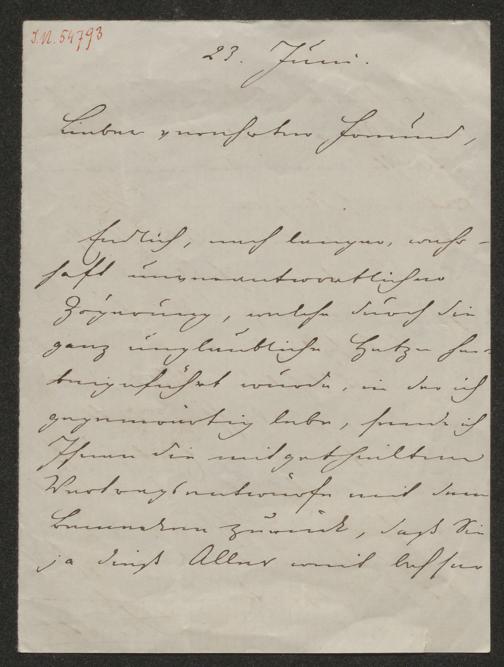 I.N. 54793
23. Juni.
Lieber verehrter Freund,
Endlich, nach langer, wahr-
haft unverantwortlicher
Zögerung, welche durch die
ganz unglaubliche Hetze her-
beigeführt wurde, in der ich
gegenwärtig lebe, sende ich
Ihnen die mitgetheilten
Vertragsentwürfe mit dem
Bemerken zurück, daß Sie
ja dieß Alles weit besser